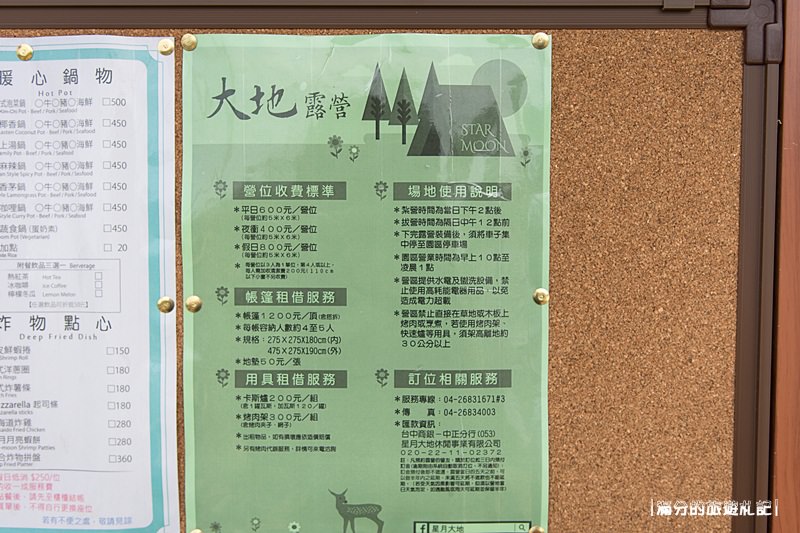 暖心鍋物
Hot Pot
○牛○豬○海鮮 □500
Beef / Pork / Seafood
椰香鍋 ○牛○豬○海鮮 □450
上湯鍋 ○牛○豬○海鮮 □450
麻辣鍋 ○牛○豬○海鮮 □450
香茅鍋 ○牛○豬○海鮮 □450
咖哩鍋 ○牛○豬○海鮮 □450
蔬食鍋 (蛋奶素) □450
加點 □ 20
附餐飲品三選一 Beverage
熱紅茶 Hot Tea □
冰咖啡 Ice Coffee □
檸檬冬瓜 Lemon Melon □
炸物點心
Deep Fried Dish
皮鮮蝦捲 □150
式洋蔥圈 □180
式炸薯條 □180
mozzarella 起司條 □180
海道炸雞 □280
月月亮蝦餅 □280
合炸物拼盤 □360
每日低消 $250/位
若有不便之處，敬請見諒
大地露營
STAR
MOON
營位收費標準
＊平日600元／營位
(每營位約5米X6米)
＊夜衝400元／營位
(每營位約5米X6米)
＊假日800元／營位
(每營位約5米X6米)
＊每營位以3人為1單位，第4人或以上，
每人需加收清潔費200元(110cm
以下小童不另收費)
帳篷租借服務
＊帳篷1200元／頂(含搭拆)
＊每帳容納人數約4至5人
＊規格：275X275X180cm(內)
475X275X190cm(外)
＊地墊50元／張
用具租借服務
＊卡斯爐200元／組
(含1罐瓦斯，加瓦斯120／罐)
＊烤肉架300元／組
(含烤肉夾子、網子)
＊出租物品，如有損壞應依造價賠償
＊另有烤肉代辦服務，詳情可來電洽詢
場地使用說明
＊紮營時間為當日下午2點後
＊拔營時間為隔日中午12點前
＊下完露營裝備後，須將車子集
中停至園區停車場
＊園區營業時間為早上10點至
凌晨1點
＊營區提供水電及盥洗設備，禁
止使用高耗能電器用品，以免
造成電力超載
＊營區禁止直接在草地或木板上
烤肉或烹煮，若使用烤肉架、
快速爐等用具，須架高離地約
30公分以上
訂位相關服務
＊服務專線：04-26831671#3
＊傳　真：04-26834003
＊匯款資訊：
台中商銀－中正分行(053)
星月大地休閒事業有限公司
020-22-11-02372
f 星月大地
|滿分的旅遊札記|